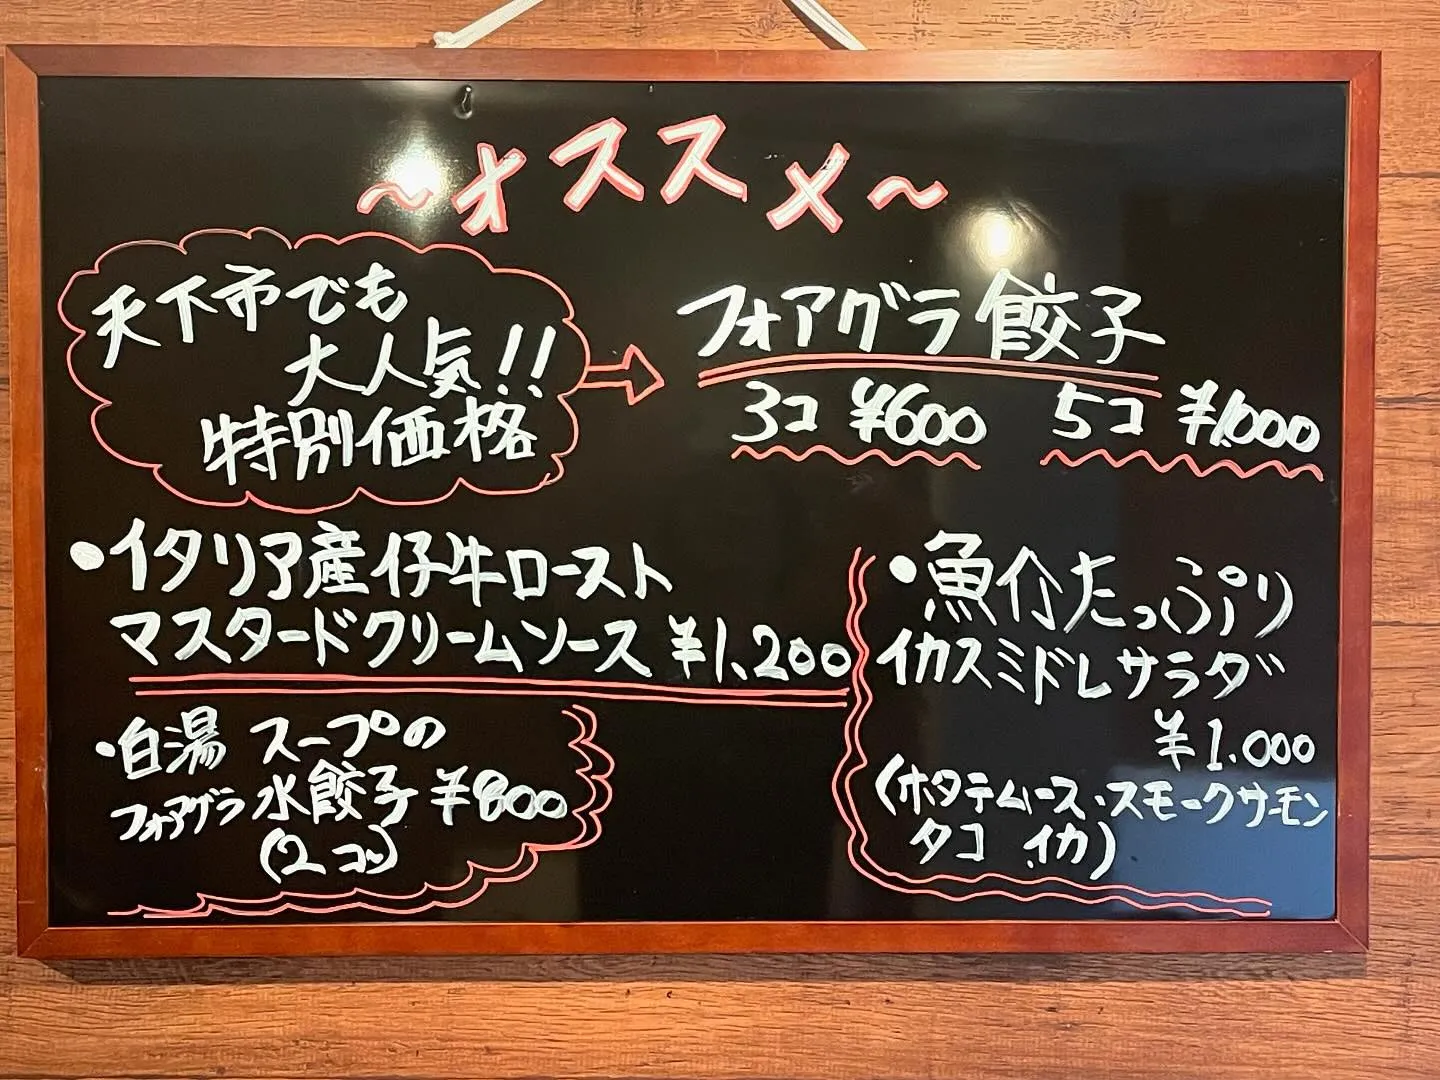 ～オススメ～
天下市でも
大人気!!
特別価格
フォアグラ餃子
3コ ¥600 5コ ¥1,000
・イタリア産仔牛ロースト
マスタードクリームソース ¥1,200
・白湯 スープの
フォアグラ 水餃子 ¥800
(2コ)
・魚介たっぷり
イカスミドレサラダ
¥1.000
(ホタテムース、スモークサーモン
タコ イカ)